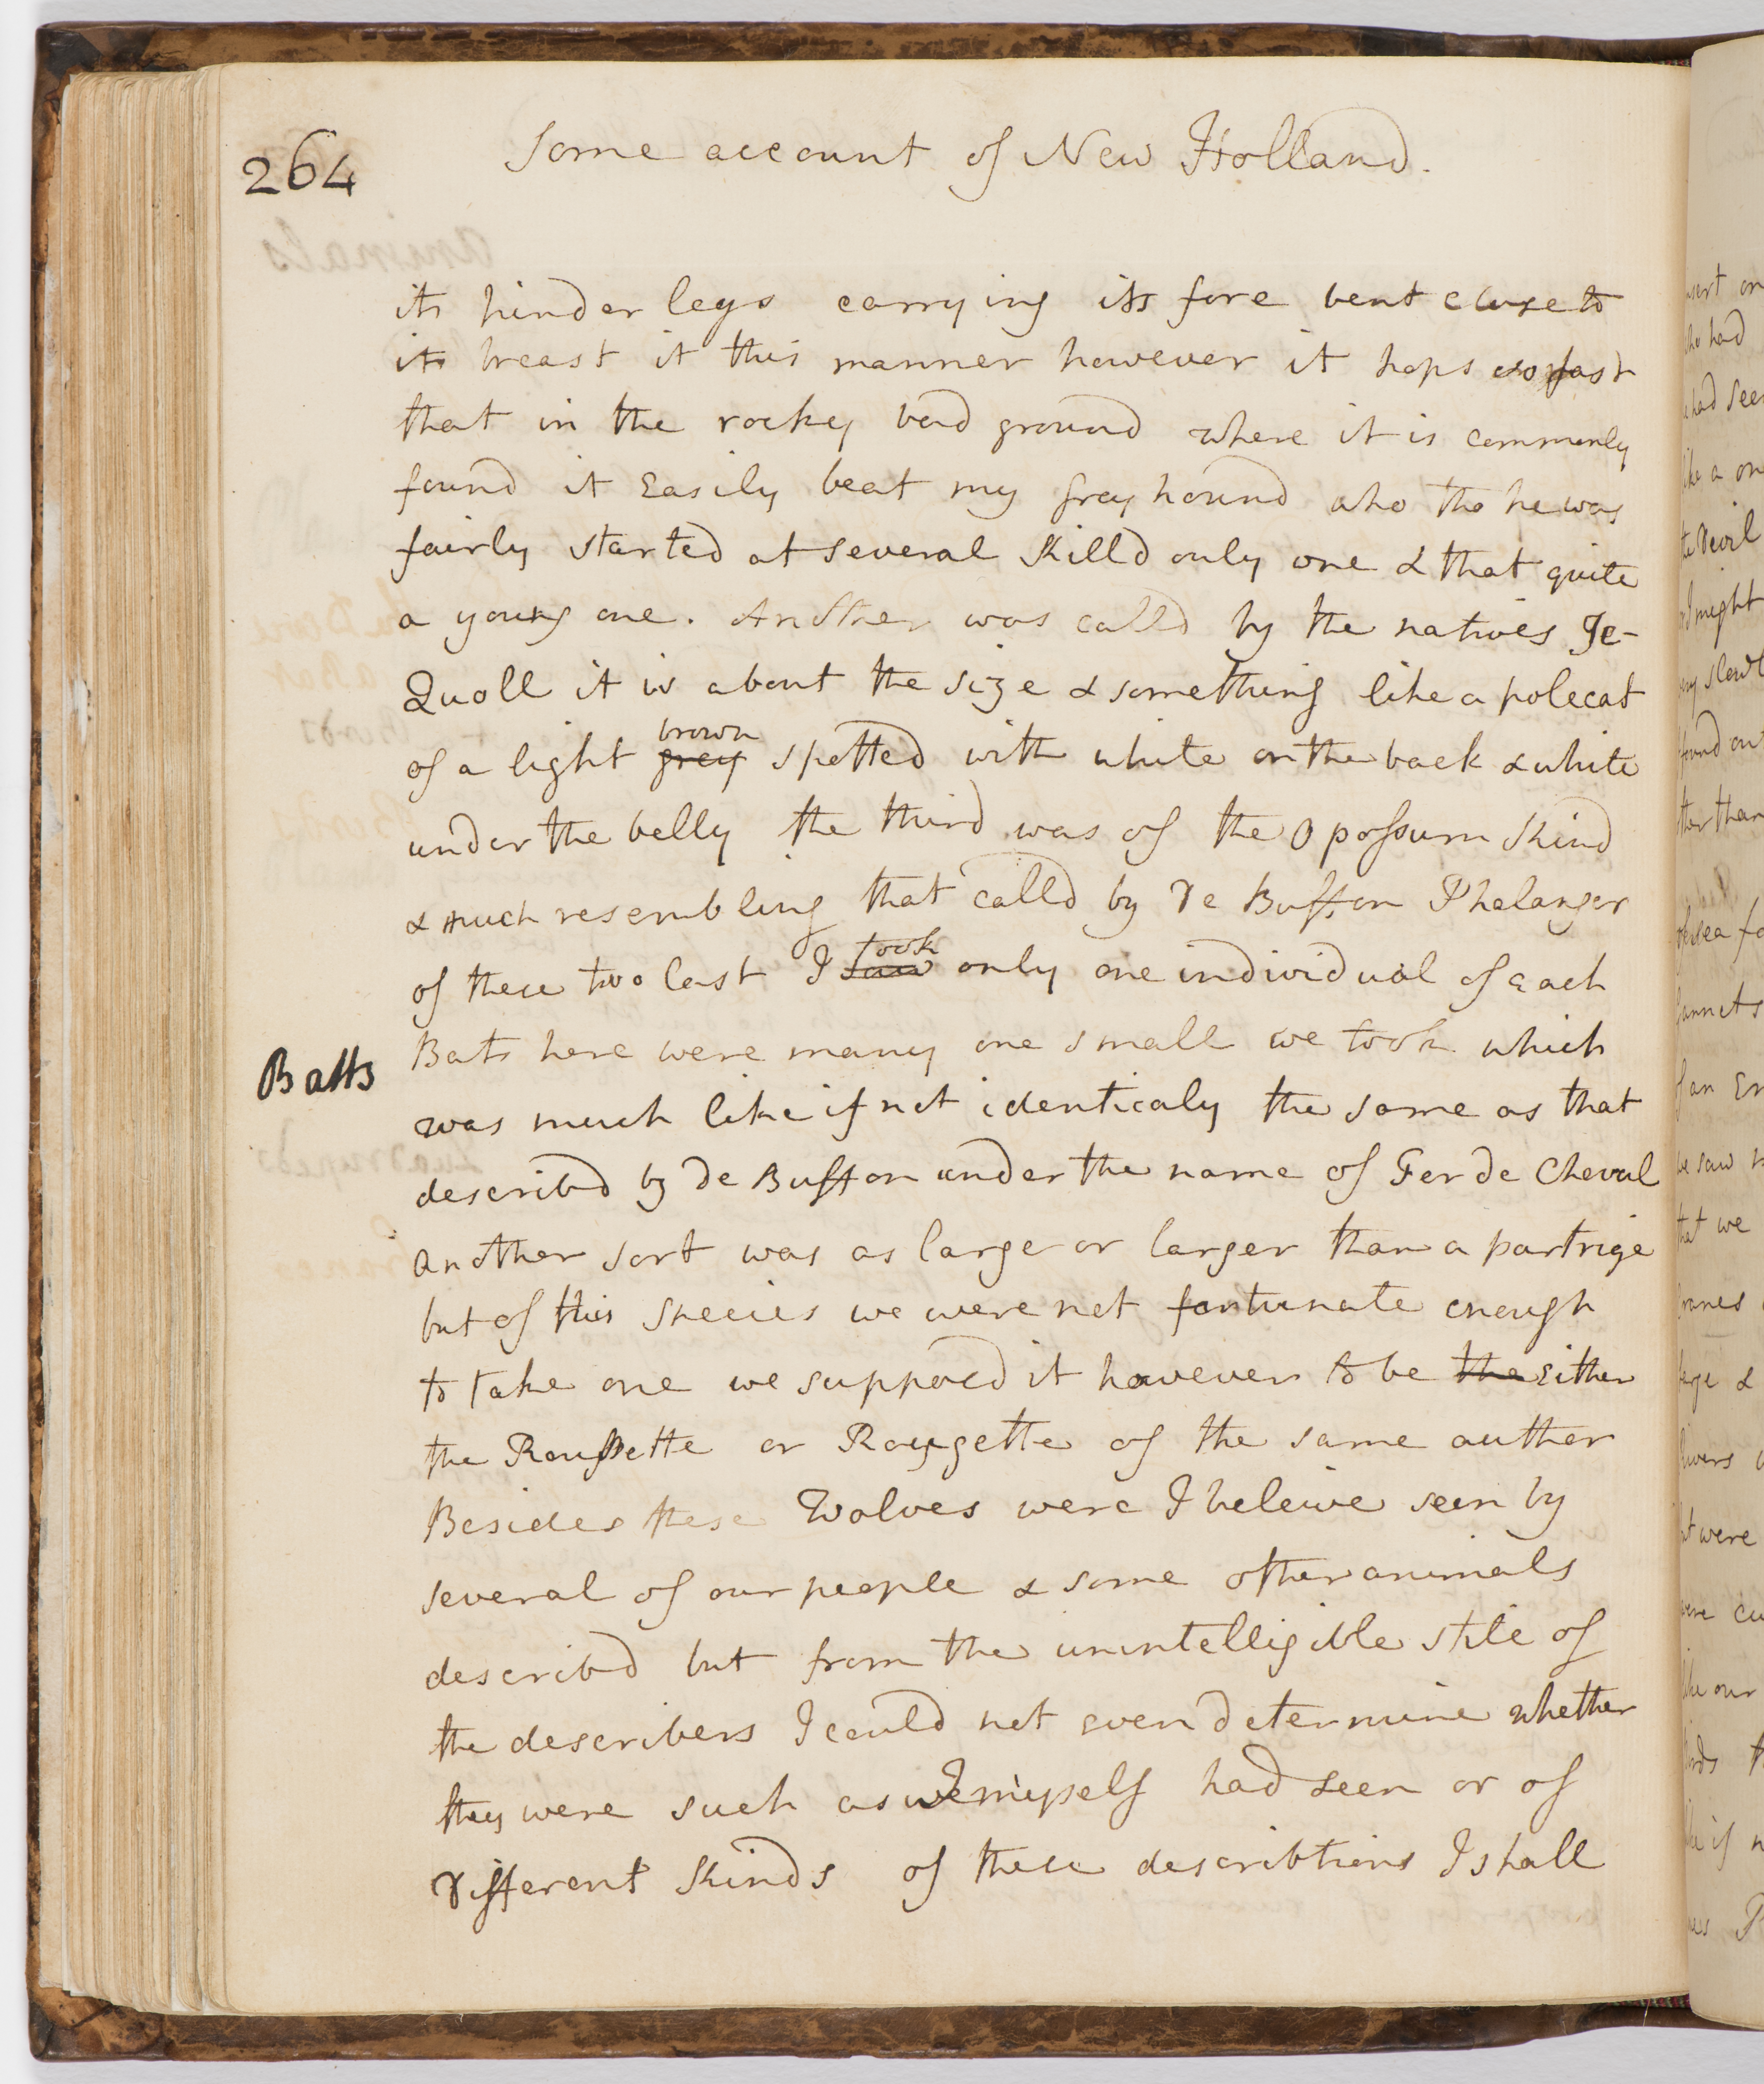 264
Some account of New Holland.
its hinder legs carrying its fore bent close to
its breast it this manner however it hops so fast
that in the rockey bad ground where it is commonly
found it Easily beat my greyhound who tho he was
fairly started at several killd only one & that quite
a young one. Another was calld by the natives Je-
Quoll it is about the size & something like a polecat
of a light grey brown spotted with white on the back & white
under the belly the third was of the Opossum kind
& much resembling that calld by De Buffon Phalanger
of these two last I saw took only one individual of each
Batts
Bats here were many one small we took which
was much like if not identicaly the same as that
describd by De Buffon under the name of Fer de Cheval
another sort was as large or larger than a partrige
but of this species we were not fortunate enough
to take one we supposd it however to be the Either
the Roussette or Rougette of the same author
Besides these Wolves were I beleive seen by
several of our people & some other animals
describd but from the unintelligible stile of
the describers I could not even determine whether
they were such as I myself had seen or of
different kinds of these describtions I shall